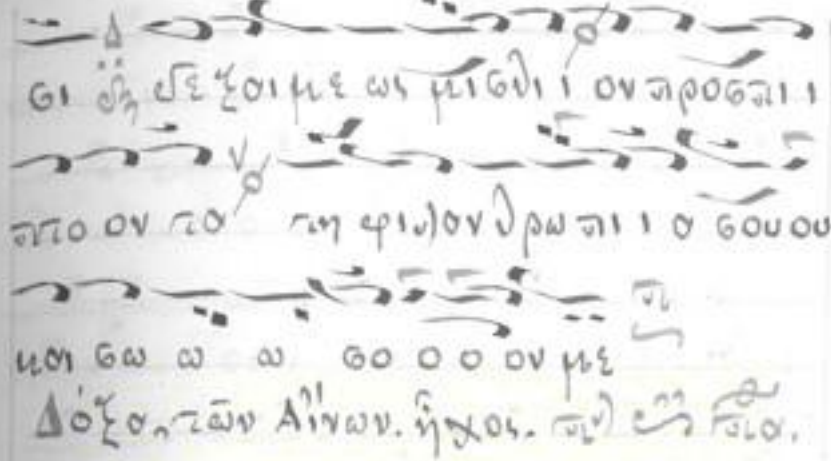 σι δεξαι με ως μισθι ι ον προσπι ι
πτο ον τα τη φιλανθρωπι ι α σου ου
και σω ω ω σο ο ο ον με
Δόξα, τῶν Αἴνων. ἦχος. Πα.